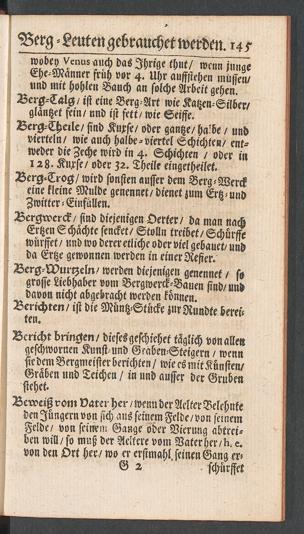 Berg-Leuten gebrauchet werden. 145
wobey Venus auch das Ihrige thut / wenn junge
Ehe-Männer früh vor 4. Uhr auffstehen müssen /
und mit hohlen Bauch an solche Arbeit gehen.
Berg-Talg / ist eine Berg-Art wie Katzen-Silber /
gläntzet fein / und ist fett / wie Seiffe.
Berg-Theile / sind Kuxse / oder gantze / halbe / und
vierteln / wie auch halbe-viertel Schichten / ent-
weder die Zeche wird in 4. Schichten / oder in
128. Kuxse / oder 32. Theile eingetheilet.
Berg-Trog / wird sonsten ausser dem Berg-Werck
eine kleine Mulde genennet / dienet zum Ertz- und
Zwitter-Einfüllen.
Bergwerck / sind diejenigen Oerter / da man nach
Ertzen Schächte sencket / Stolln treibet / Schürffe
würffet / und wo derer etliche oder viel gebauet / und
da Ertze gewonnen werden in einer Refier.
Berg-Wurtzeln / werden diejenigen genennet / so
grosse Liebhaber vom Bergwerck-Bauen sind / und
davon nicht abgebracht werden können.
Berichten / ist die Müntz-Stücke zur Rundte berei-
ten.
Bericht bringen / dieses geschiehet täglich von allen
geschwornen Kunst- und Graben-Steigern / wenn
sie dem Bergmeister berichten / wie es mit Künsten /
Gräben und Teichen / in und ausser der Gruben
stehet.
Beweiß vom Vater her / wenn der Aelter Belehnte
den Jüngern von sich aus seinem Felde / von seinem
Felde / von seinem Gange oder Vierung abtrei-
ben will / so muß der Aeltere vom Vater her / h. e.
von den Ort her / wo er erstmahl seinen Gang er-
G 2 schürffet